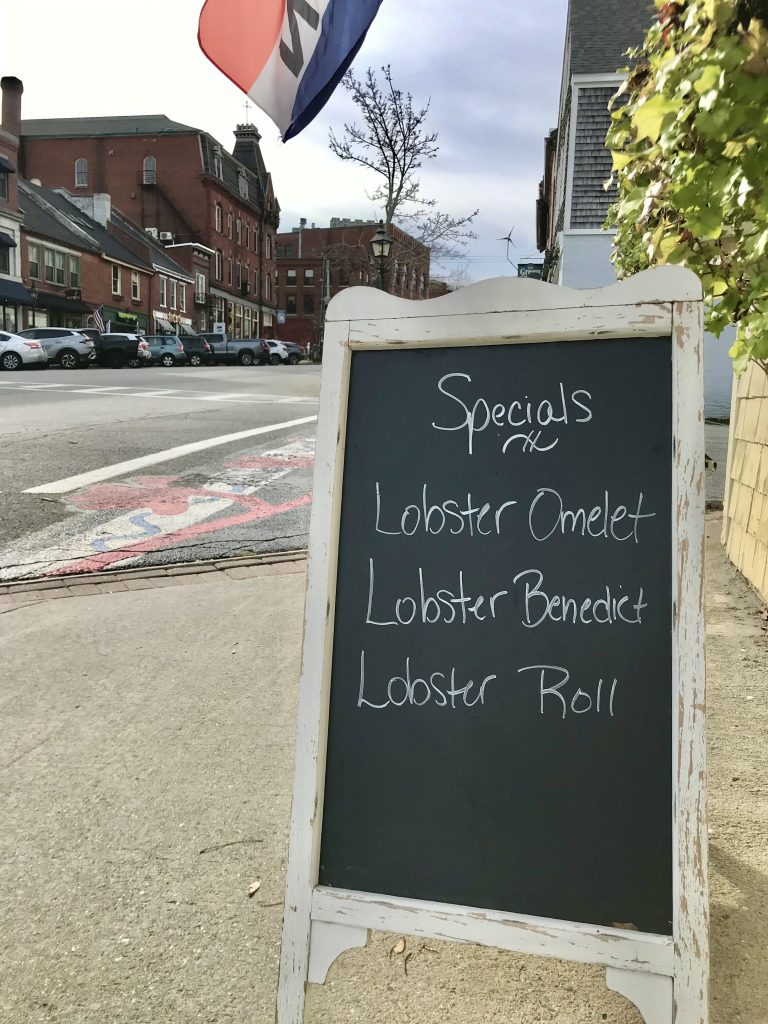 N
Specials
Lobster Omelet
Lobster Benedict
Lobster Roll